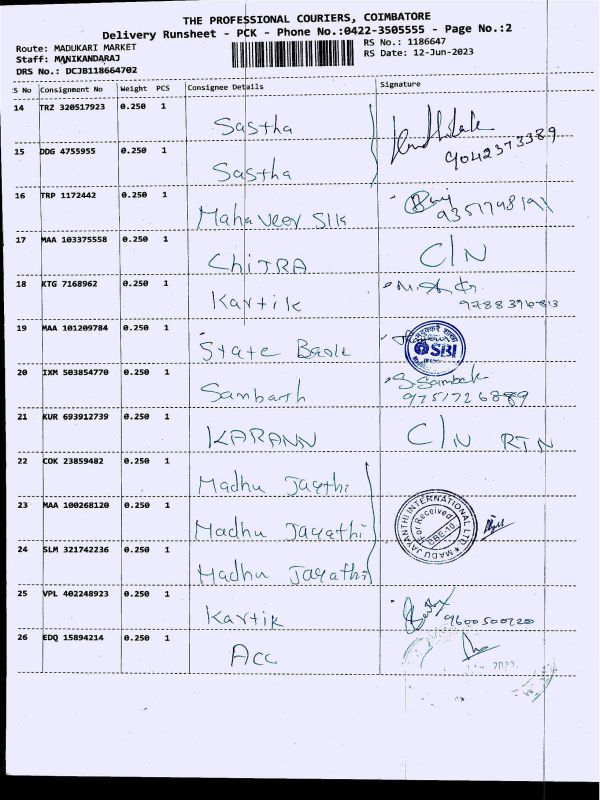 THE PROFESSIONAL COURIERS, COIMBATORE
Delivery Runsheet - PCK - Phone No.:0422-3505555 - Page No.:2
Route: MADUKARI MARKET
RS No.: 1186647
Staff: MANIKANDARAJ
RS Date: 12-Jun-2023
DRS No.: DCJB118664702
S No Consignment No Weight PCS Consignee Details Signature
14 TRZ 320517923 0.250 1 Sastha
15 DDG 4755955 0.250 1 Sastha 9042373389
16 TRP 1172442 0.250 1 Mahaveer Slk
17 MAA 103375558 0.250 1 CHITRA C/N
18 KTG 7168962 0.250 1 Kartik 9788396813
19 MAA 101209784 0.250 1 State Bank SBI
20 IXM 503854770 0.250 1 Sambarh 9751726889
21 KUR 693912739 0.250 1 KARANN C/N RTN
22 COK 23859482 0.250 1 Madhu Jayathi
23 MAA 100268120 0.250 1 Madhu Jayathi
MADU JAYANTHI INTERNATIONAL LTD.
For Received
DBE-10
24 SLM 321742236 0.250 1 Madhu Jayathi
25 VPL 402248923 0.250 1 Kartik 9600500720
26 EDQ 15894214 0.250 1 Acc